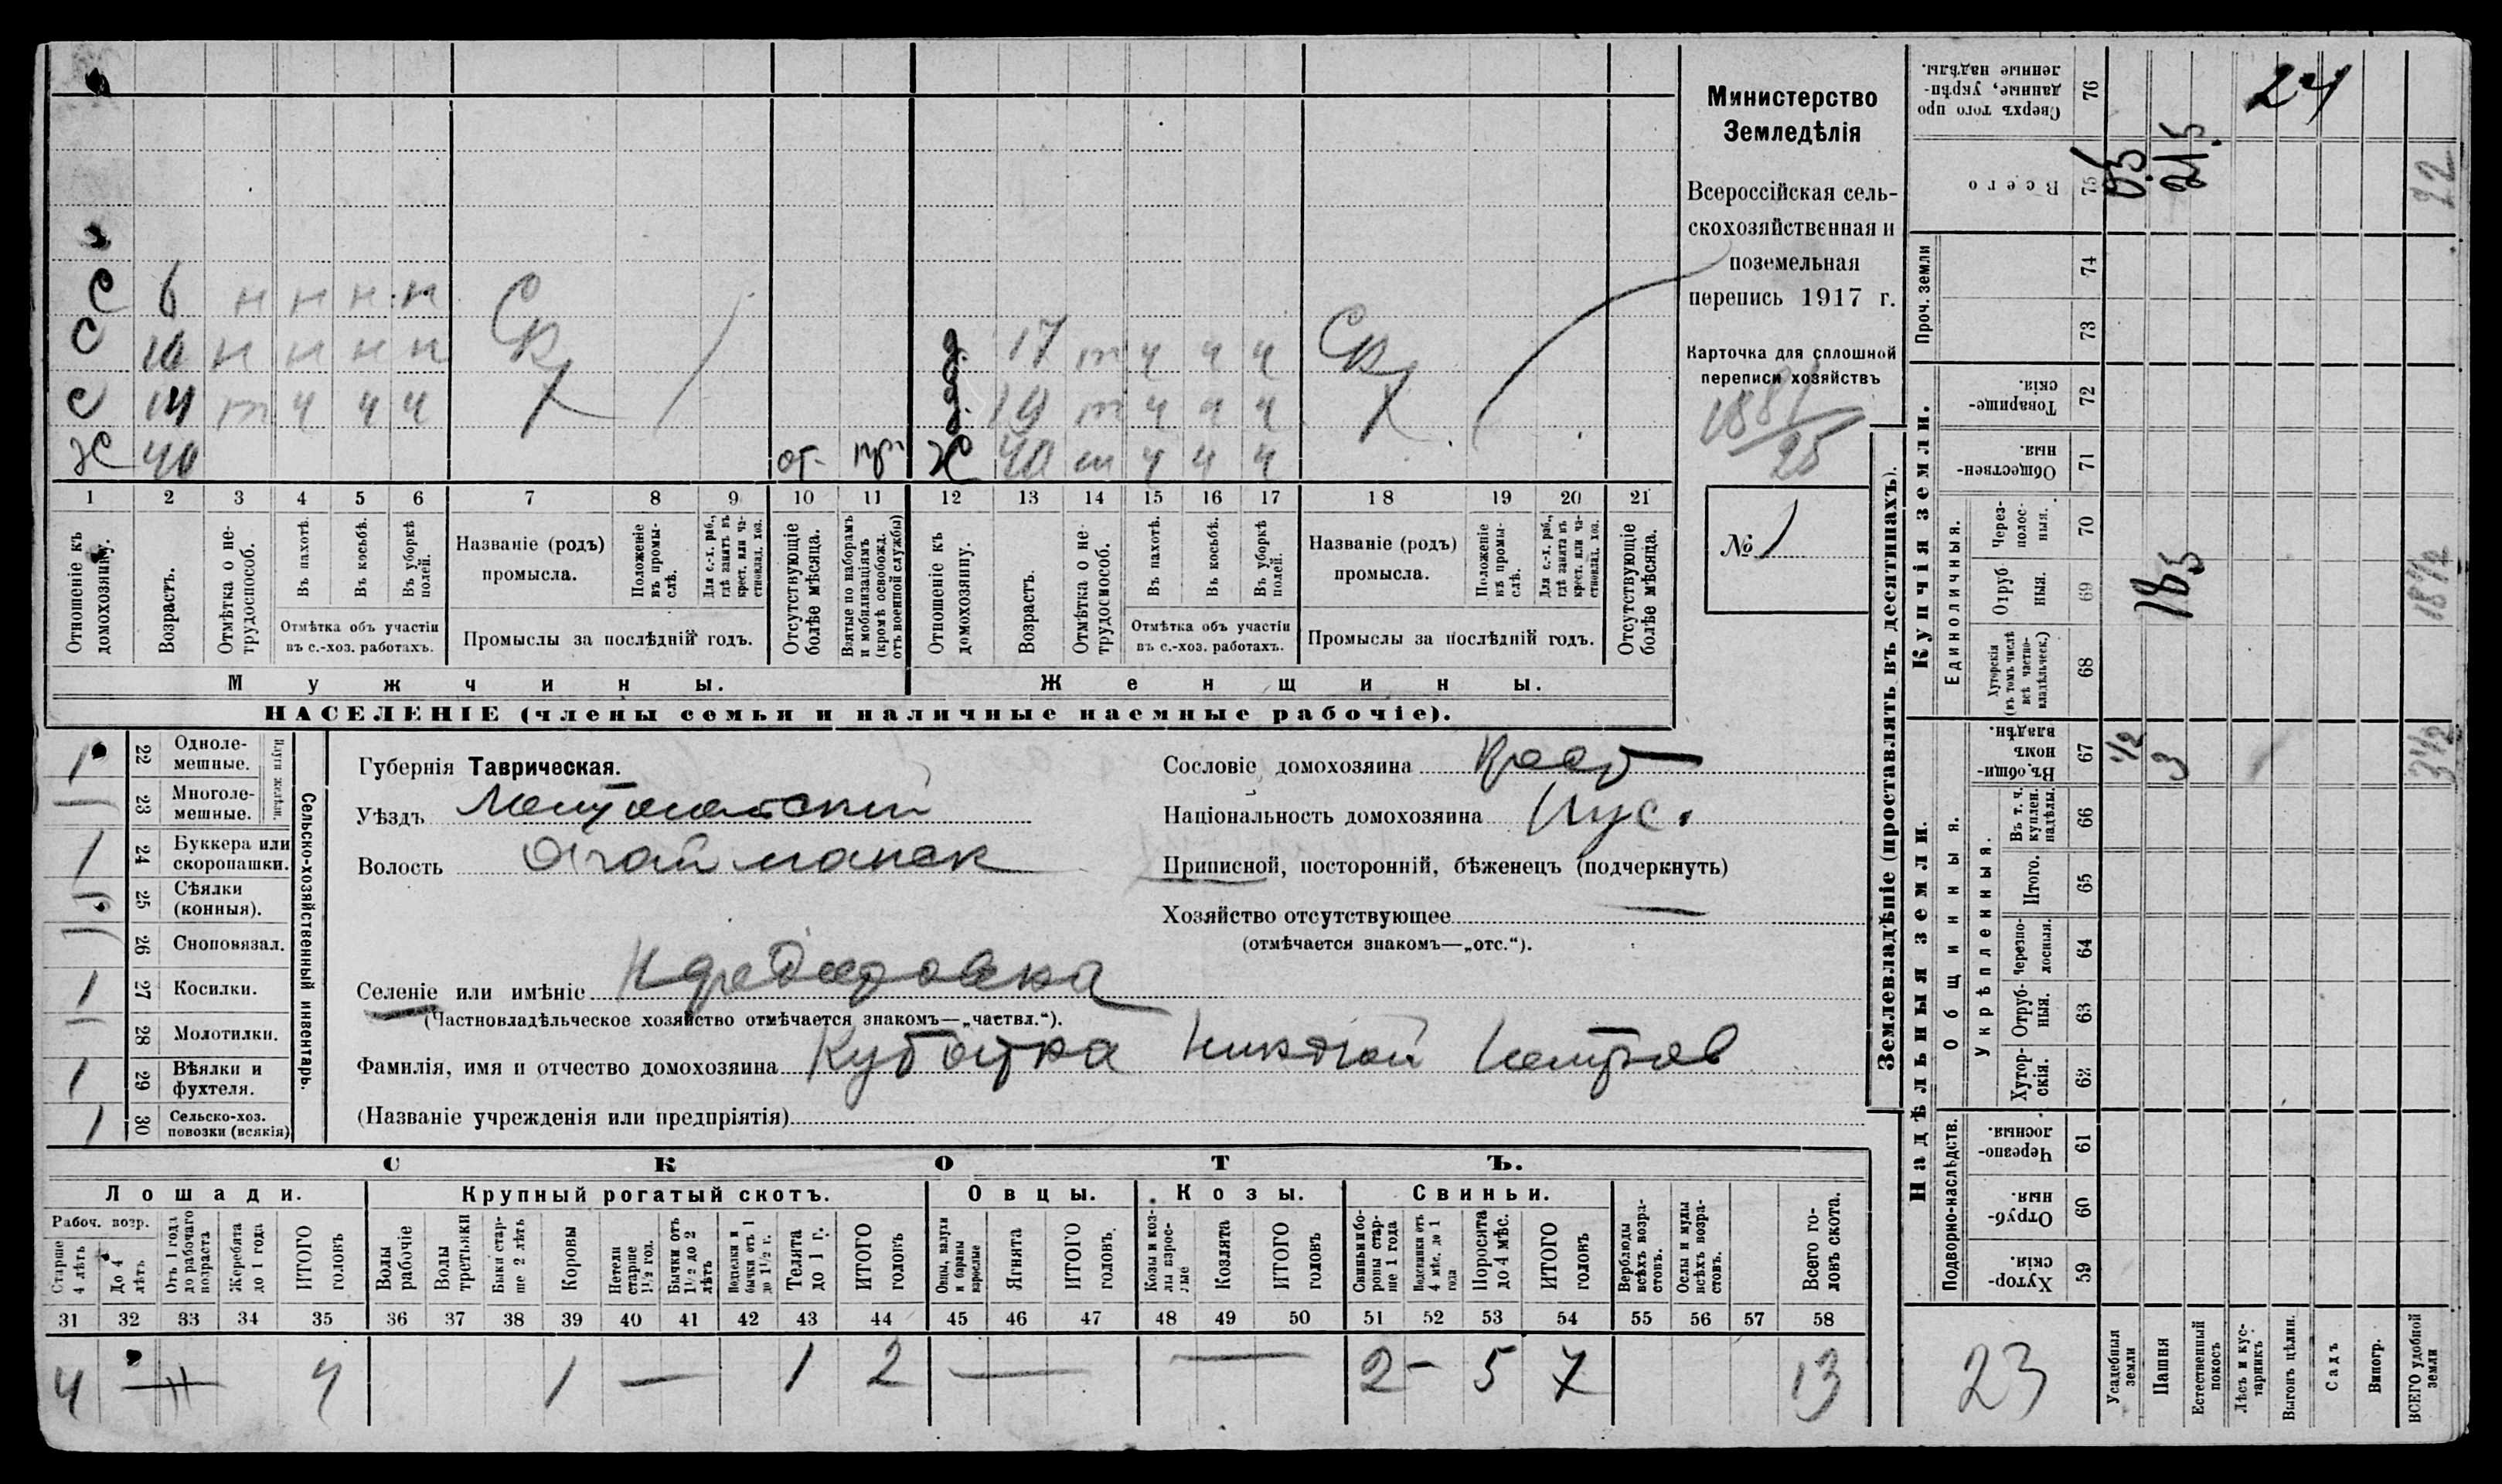 Министерство
Земледѣлія
Всероссійская сель-
скохозяйственная и
поземельная
перепись 1917 г.
Карточка для сплошной
переписи хозяйствъ
1881/25
№ 1
с 6 н н н н
с 10 н н н н
с 14 т ч ч ч
ж 40 от.
д. 17 т ч ч ч
д. 19 т ч ч ч
ж 40 ч ч ч
1 2 3 4 5 6 7 8 9 10 11 12 13 14 15 16 17 18 19 20 21
Отношеніе къ домохозяину.
Возрастъ.
Отмѣтка о не-трудоспособ.
Въ пахотѣ.
Въ косьбѣ.
Въ уборкѣ полей.
Отмѣтка объ участіи
въ с.-хоз. работахъ.
Названіе (родъ)
промысла.
Положеніе въ промы-слѣ.
Для с.-х. раб., гдѣ занятъ въ крест. или ча-стновлад. хоз.
Промыслы за послѣдній годъ.
Отсутствующіе болѣе мѣсяца.
Взятые по наборамъ и мобилизаціямъ (кромѣ освобожд. отъ военной службы)
Отношеніе къ домохозяину.
Возрастъ.
Отмѣтка о не-трудоспособ.
Въ пахотѣ.
Въ косьбѣ.
Въ уборкѣ полей.
Отмѣтка объ участіи
въ с.-хоз. работахъ.
Названіе (родъ)
промысла.
Положеніе въ промы-слѣ.
Для с.-х. раб., гдѣ занята въ крест. или ча-стновлад. хоз.
Промыслы за послѣдній годъ.
Отсутствующіе болѣе мѣсяца.
Мужчины.
Женщины.
НАСЕЛЕНІЕ (члены семьи и наличные наемные рабочіе).
Сельско-хозяйственный инвентарь.
1 22 Одноле-мешные.
23 Многоле-мешные.
1 24 Буккера или скоропашки.
25 Сѣялки (конныя).
26 Сноповязал.
1 27 Косилки.
28 Молотилки.
1 29 Вѣялки и фухтеля.
1 30 Сельско-хоз. повозки (всякія)
Губернія Таврическая.
Уѣздъ Мелитопольскій
Волость Агайманск
Селеніе или имѣніе
(Частновладѣльческое хозяйство отмѣчается знакомъ—„частвл.“).
Фамилія, имя и отчество домохозяина
(Названіе учрежденія или предпріятія)
Сословіе домохозяина Крест
Національность домохозяина Рус.
Приписной, посторонній, бѣженецъ (подчеркнуть)
Хозяйство отсутствующее —
(отмѣчается знакомъ—„отс.“).
СКОТЪ.
Лошади.
Рабоч. возр.
Старше 4 лѣтъ
До 4 лѣтъ
Отъ 1 года до рабочаго возраста
Жеребята до 1 года
ИТОГО головъ
Крупный рогатый скотъ.
Волы рабочіе
Волы третьяки
Быки стар-ше 2 лѣтъ
Коровы
Нетели старше 1½ год.
Бычки отъ 1½ до 2 лѣтъ
Телята до 1 г.
ИТОГО головъ
Овцы.
Ягнята
ИТОГО головъ.
Козы.
Козы и коз-лы взрос-лые
Козлята
ИТОГО головъ
Свиньи.
Свиньи и бо-ровы стар-ше 1 года
Поросята до 4 мѣс.
ИТОГО головъ
Верблюды всѣхъ возра-стовъ.
Ослы и мулы всѣхъ возра-стовъ.
Всего го-ловъ скота.
31 32 33 34 35 36 37 38 39 40 41 42 43 44 45 46 47 48 49 50 51 52 53 54 55 56 57 58
4 4 1 — 1 2 — — 2 - 5 7 13
Землевладѣніе (проставлять въ десятинахъ).
Надѣльныя земли.
Подворно-наслѣдств.
Хутор-скія. 59
Отруб-ныя. 60
Черезпо-лосныя. 61
Общинныя.
Укрѣпленныя.
Хутор-скія. 62
Отруб-ныя. 63
Черезпо-лосныя. 64
Итого. 65
Въ т. ч. куплен. надѣлы. 66
Въ общин-номъ владѣн. 67
½ 3 3½
Купчія земли.
Единоличныя.
Хуторскія (въ томъ числѣ всѣ частно-владѣльческ.) 68
Отруб-ныя. 69
18.5 18½
Через-полос-ныя. 70
Обществен-ныя. 71
Товарище-скія. 72
Проч. земли
73
74
Всего 75
0.5 21.5 22
Сверхъ того про-данные, укрѣп-ленные надѣлы. 76
24
23
Усадебныя земли
Пашня
Естественный покосъ
Лѣсъ и кус-тарникъ
Выгонъ цѣлин.
Садъ
Виногр.
ВСЕГО удобной земли